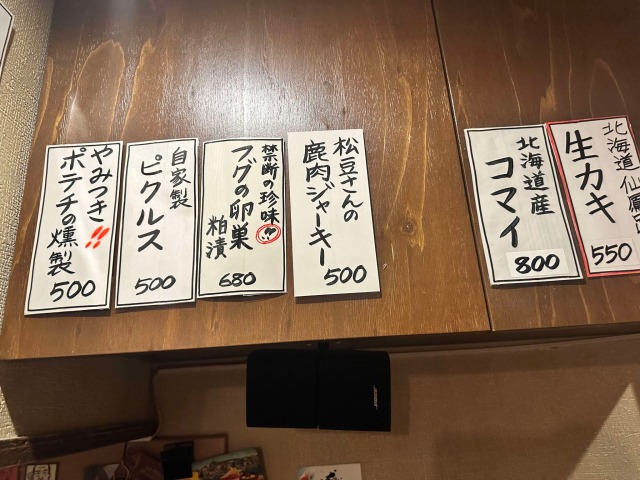 北海道 仙鳳
生カキ
550
北海道産
コマイ
800
松豆さんの
鹿肉ジャーキー
500
禁断の珍味!!
フグの卵巣
粕漬
680
自家製
ピクルス
500
やみつき!!
ポテチの燻製
500
BOSE